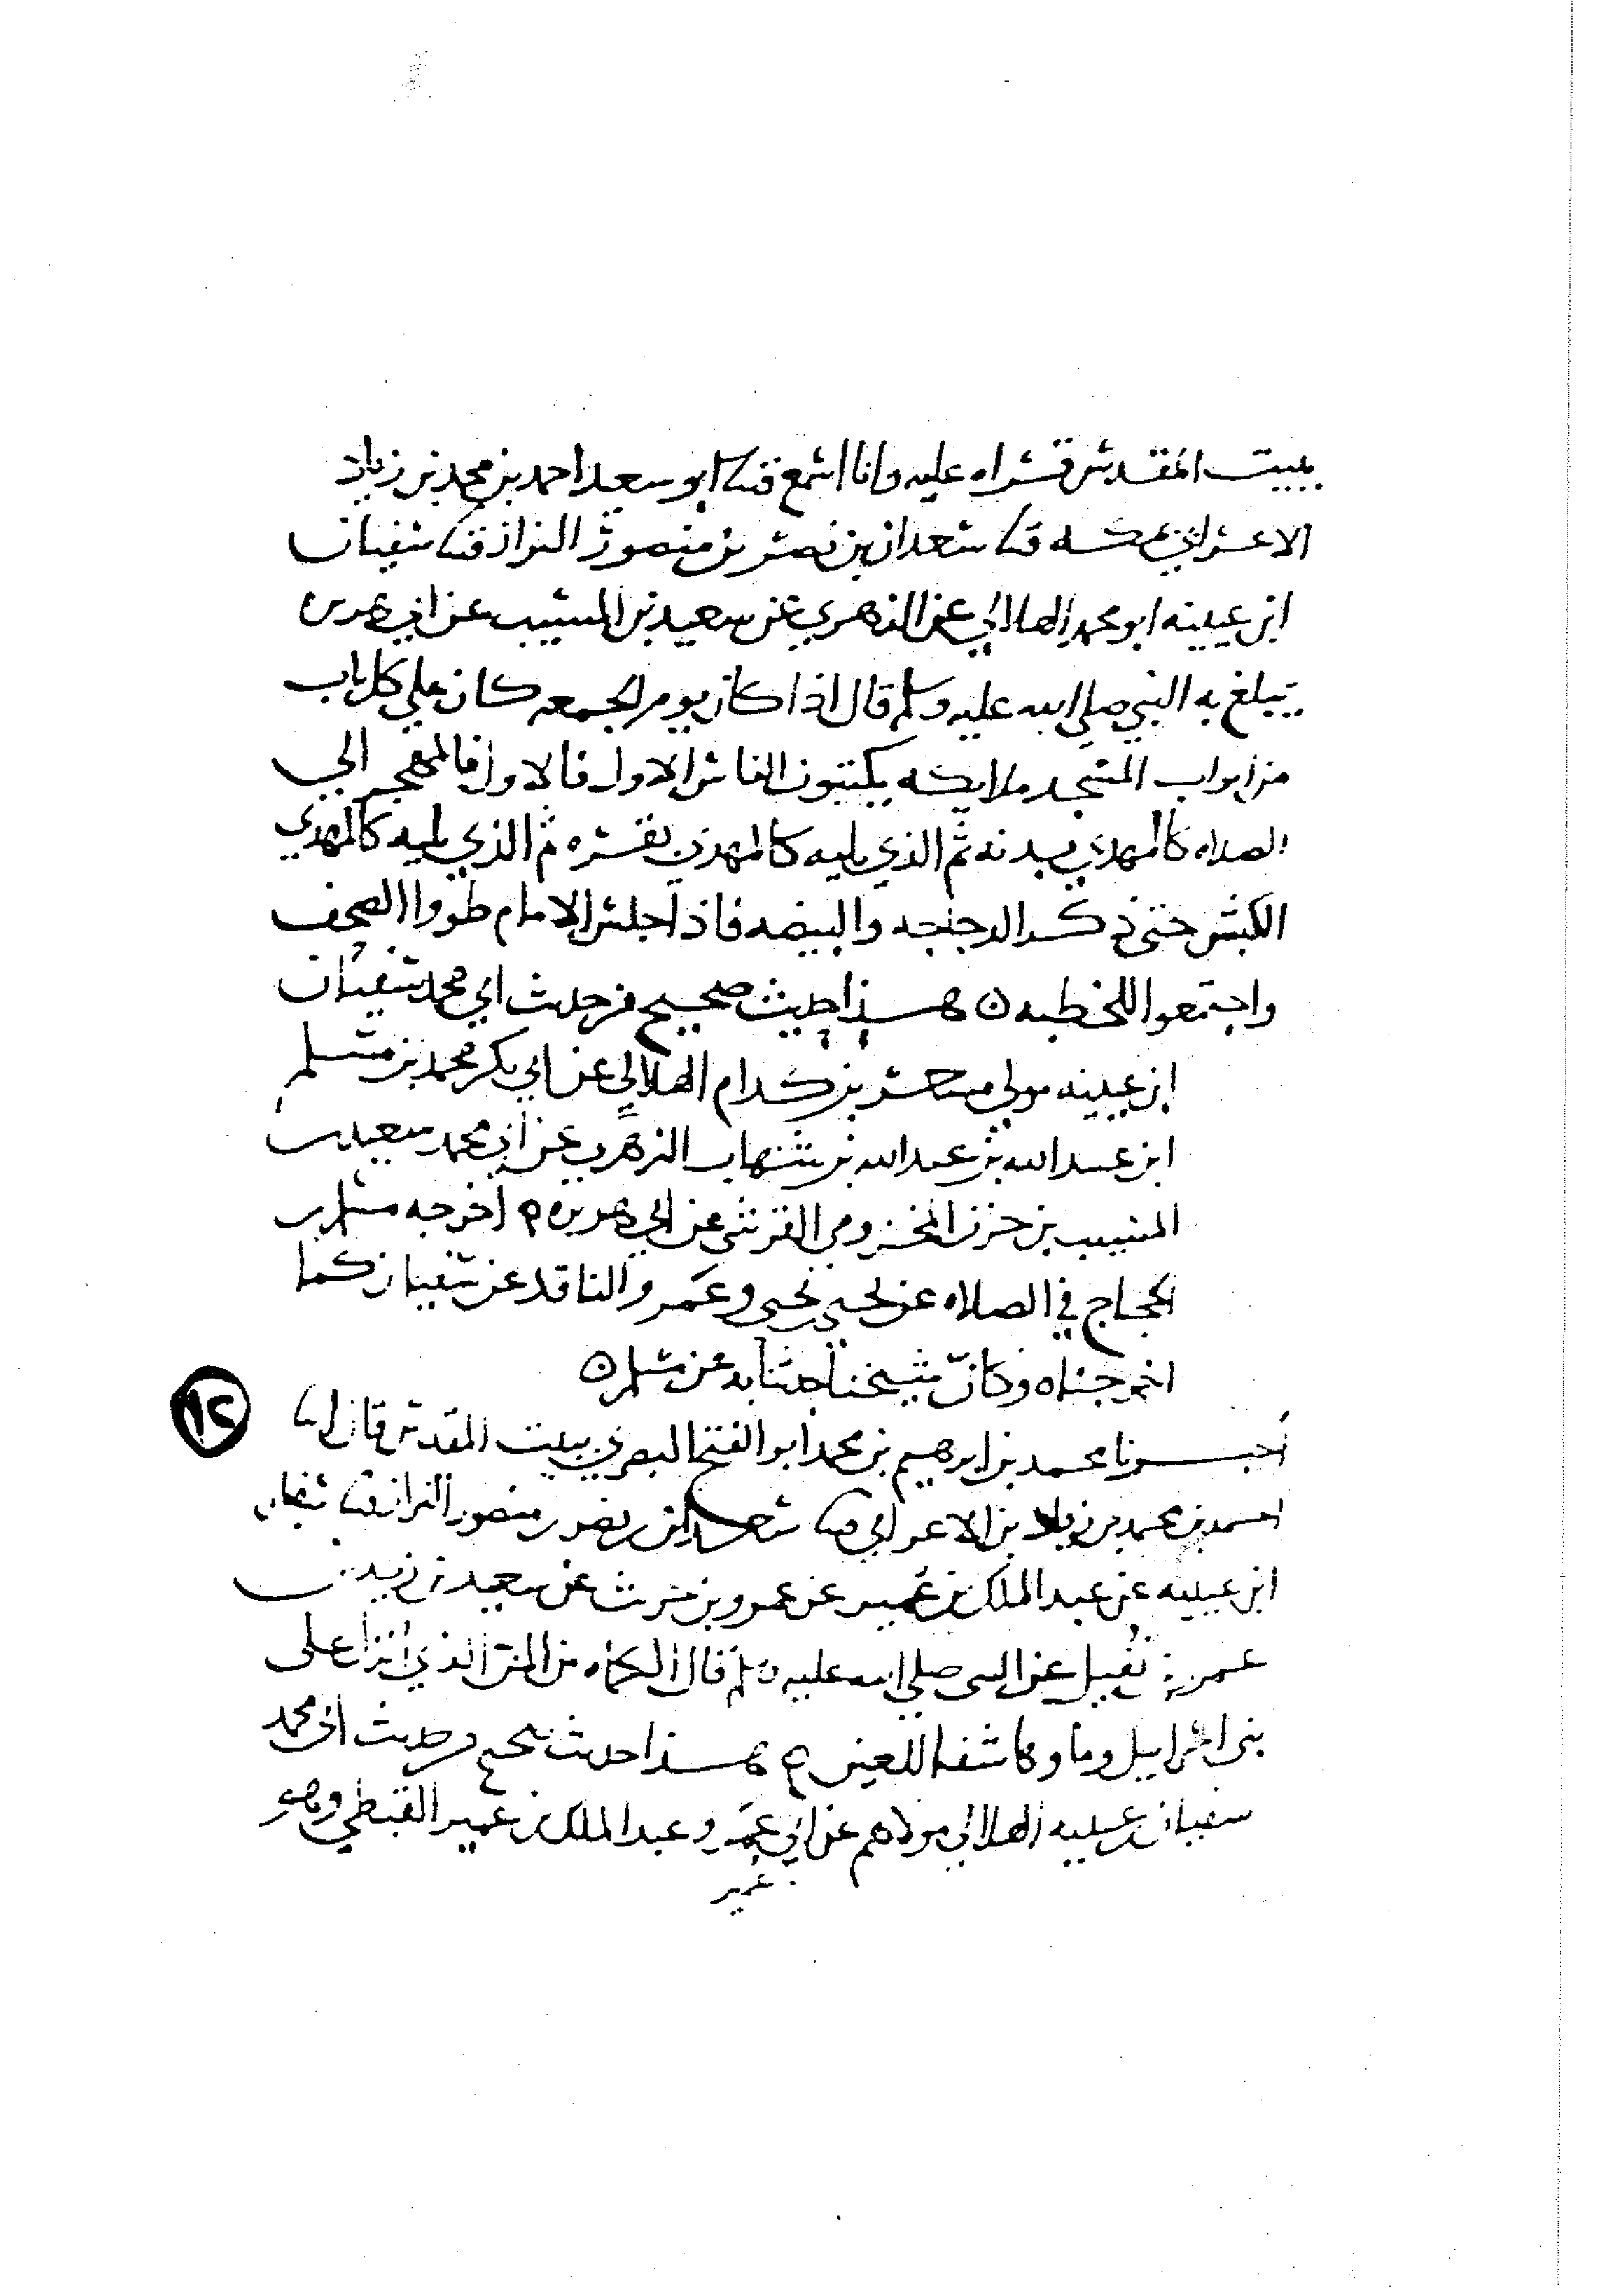 ببيت المقدس قراه عليه وانا اسمع قثنا ابو سعيد احمد بن محمد بن زياد
الاعرابي بمكه قثنا سعدان بن نصر بن منصور البزاز قثنا سفيان
ابن عيينه ابو محمد الهلالي عن الزهري عن سعيد بن المسيب عن ابي هريره
يبلغ به النبي صلى الله عليه وسلم قال اذا كان يوم الجمعه كان علي كل باب
من ابواب المسجد ملايكه يكتبون الناس الاول فالاول فالمهجر الي
الصلاه كالمهدي بدنه ثم الذي يليه كالمهدي بقره ثم الذي يليه كالمهدي
الكبش حتى ذكر الدجاجه والبيضه فاذا جلس الامام طووا الصحف
واجتمعوا للخطبه ن هذا حديث صحيح من حديث ابي محمد سفيان
ابن عيينه مولي مسعر بن كدام الهلالي عن ابي بكر محمد بن مسلم
ابن عبيد الله بن عبد الله بن شهاب الزهري عن ابي محمد سعيد بن
المسيب بن حزن المخزومي القرشي عن ابي هريره ه اخرجه مسلم بن
الحجاج في الصلاه عن يحيى بن يحيى وعمرو الناقد عن سفيان كما
اخرجناه وكان شيخنا حدثنا به عن مسلم ن
١٢
اخبرنا محمد بن ابرهيم بن محمد ابو الفتح البصري ببيت المقدس قال انا
احمد بن محمد بن زياد بن الاعرابي قثنا سعدان بن نصر بن منصور البزاز قثنا سفيان
ابن عيينه عن عبد الملك بن عمير عن عمرو بن حريث عن سعيد بن زيد بن
عمرو بن نفيل عن النبي صلي الله عليه وسلم قال الكماه من المن الذي انزل على
بني اسرايل وماوها شفا للعين ه هذا حديث صحيح من حديث ابي محمد
سفيان بن عيينه الهلالي مولاهم عن ابي عمرو عبد الملك بن عمير القبطي وهو
عمير